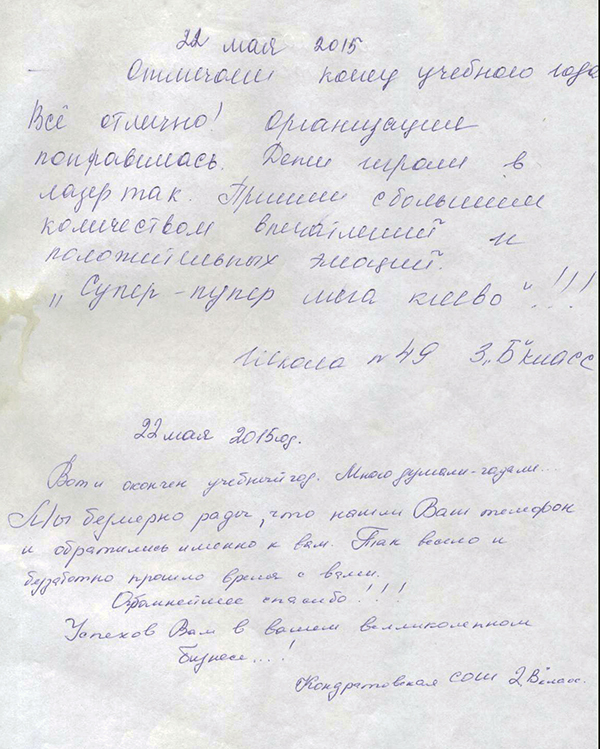 22 мая 2015
Отмечаем конец учебного года
Всё отлично! Организация
понравилась. Дети играли в
лазер так. Пришли с большим
количеством впечатлений и
положительных эмоций.
„Супер-пупер мега клёво“!!!
Школа №49 3„Б“класс
22 мая 2015год.
Вот и окончен учебный год. Много думали-гадали...
Мы безмерно рады, что нашли Ваш телефон
и обратились именно к вам. Так весело и
беззаботно прошло время с вами.
Огромнейшее спасибо!!!
Успехов Вам в вашем великолепном
бизнесе...!
Кондратовская СОШ 2„В“класс.